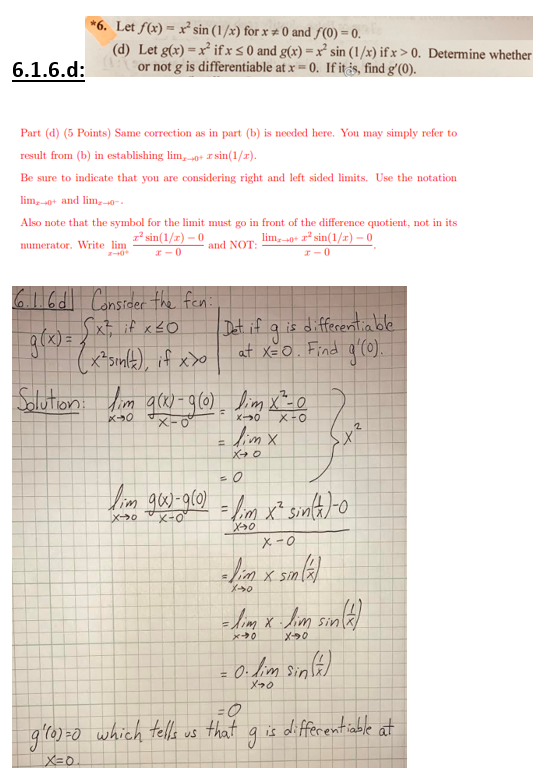 *6. Let f(x) = x² sin (1/x) for x ≠ 0 and f(0) = 0.
(d) Let g(x) = x² if x ≤ 0 and g(x) = x² sin (1/x) if x > 0. Determine whether
or not g is differentiable at x = 0. If it is, find g'(0).
6.1.6.d:
Part (d) (5 Points) Same correction as in part (b) is needed here. You may simply refer to
result from (b) in establishing lim_{x→0+} x sin(1/x).
Be sure to indicate that you are considering right and left sided limits. Use the notation
lim_{x→0+} and lim_{x→0-}.
Also note that the symbol for the limit must go in front of the difference quotient, not in its
numerator. Write lim_{x→0+} (x² sin(1/x) − 0)/(x − 0) and NOT: (lim_{x→0+} x² sin(1/x) − 0)/(x − 0).
6.1.6d Consider the fcn:
g(x) = { x², if x ≤ 0
x² sin(1/x), if x>0
Det if g is differentiable
at x=0. Find g'(0).
Solution: lim_{x→0} (g(x)-g(0))/(x-0) = lim_{x→0} (x²-0)/(x-0)
= lim_{x→0} x
= 0
} x²
lim_{x→0} (g(x)-g(0))/(x-0) = (lim_{x→0} x² sin(1/x)-0)/(x-0)
= lim_{x→0} x sin(1/x)
= lim_{x→0} x · lim_{x→0} sin(1/x)
= 0 · lim_{x→0} sin(1/x)
= 0
g'(0)=0 which tells us that g is differentiable at
x=0.